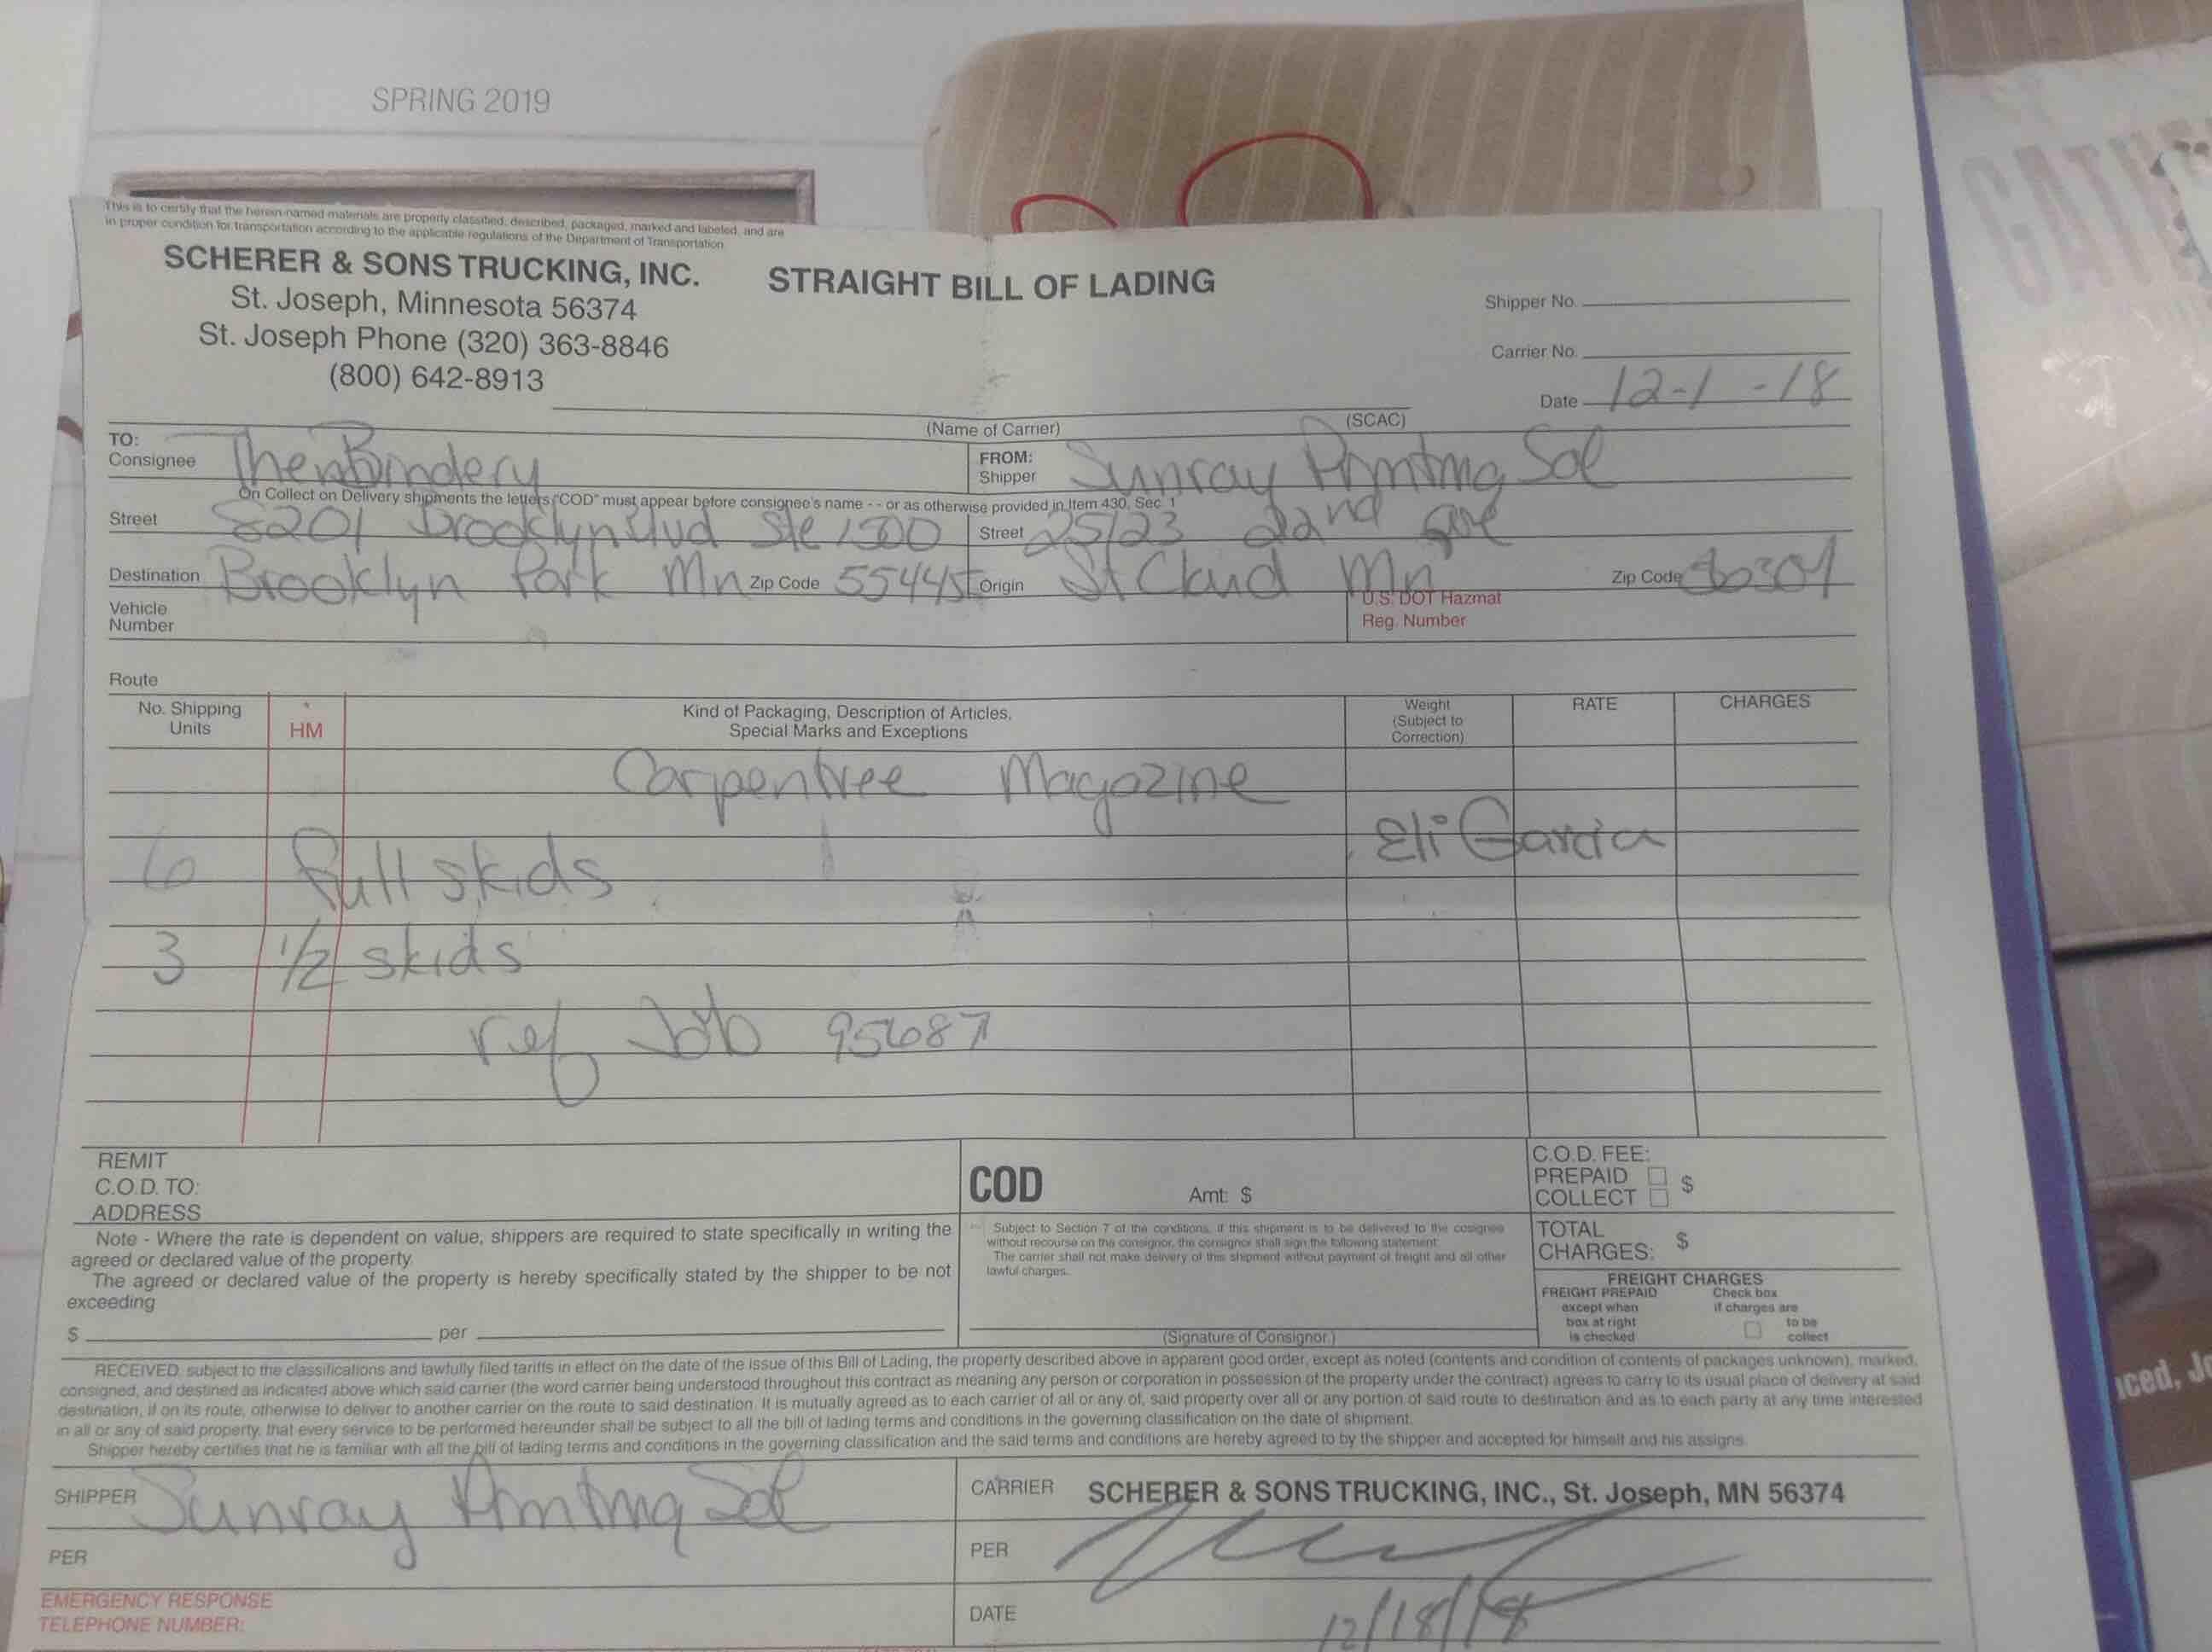 SPRING 2019
This is to certify that the herein-named materials are properly classified, described, packaged, marked and labeled, and are
in proper condition for transportation according to the applicable regulations of the Department of Transportation
SCHERER & SONS TRUCKING, INC.
St. Joseph, Minnesota 56374
St. Joseph Phone (320) 363-8846
(800) 642-8913
STRAIGHT BILL OF LADING
Shipper No.
Carrier No.
Date 12-1 -18
(Name of Carrier) (SCAC)
TO:
Consignee Bindery
FROM:
Shipper Sunray Printing Sol
On Collect on Delivery shipments the letters "COD" must appear before consignee's name - - or as otherwise provided in Item 430, Sec. 1
Street 8201 Brooklyn Blvd Ste 1500
Street 25123 22nd Ave
Destination Brooklyn Park Mn Zip Code 55445
Origin St Cloud Mn Zip Code
Vehicle
Number
U.S. DOT Hazmat
Reg. Number
Route
No. Shipping
Units
*
HM
Kind of Packaging, Description of Articles,
Special Marks and Exceptions
Weight
(Subject to
Correction)
RATE
CHARGES
Carpentree Magazine
Eli Garcia
6 full skids
3 1/2 skids
ref Job 95687
REMIT
C.O.D. TO:
ADDRESS
COD Amt: $
C.O.D. FEE:
PREPAID $
COLLECT
Note - Where the rate is dependent on value, shippers are required to state specifically in writing the
agreed or declared value of the property.
The agreed or declared value of the property is hereby specifically stated by the shipper to be not
exceeding
$ per
Subject to Section 7 of the conditions, if this shipment is to be delivered to the cosignee
without recourse on the consignor, the consignor shall sign the following statement:
The carrier shall not make delivery of this shipment without payment of freight and all other
lawful charges.
(Signature of Consignor.)
TOTAL
CHARGES: $
FREIGHT CHARGES
FREIGHT PREPAID
except when
box at right
is checked
Check box
if charges are
to be
collect
RECEIVED, subject to the classifications and lawfully filed tariffs in effect on the date of the issue of this Bill of Lading, the property described above in apparent good order, except as noted (contents and condition of contents of packages unknown), marked,
consigned, and destined as indicated above which said carrier (the word carrier being understood throughout this contract as meaning any person or corporation in possession of the property under the contract) agrees to carry to its usual place of delivery at said
destination, if on its route, otherwise to deliver to another carrier on the route to said destination. It is mutually agreed as to each carrier of all or any of, said property over all or any portion of said route to destination and as to each party at any time interested
in all or any of said property, that every service to be performed hereunder shall be subject to all the bill of lading terms and conditions in the governing classification on the date of shipment.
Shipper hereby certifies that he is familiar with all the bill of lading terms and conditions in the governing classification and the said terms and conditions are hereby agreed to by the shipper and accepted for himself and his assigns.
SHIPPER Sunray Printing Sol
CARRIER SCHERER & SONS TRUCKING, INC., St. Joseph, MN 56374
PER
PER
EMERGENCY RESPONSE
TELEPHONE NUMBER:
DATE 12/18/18